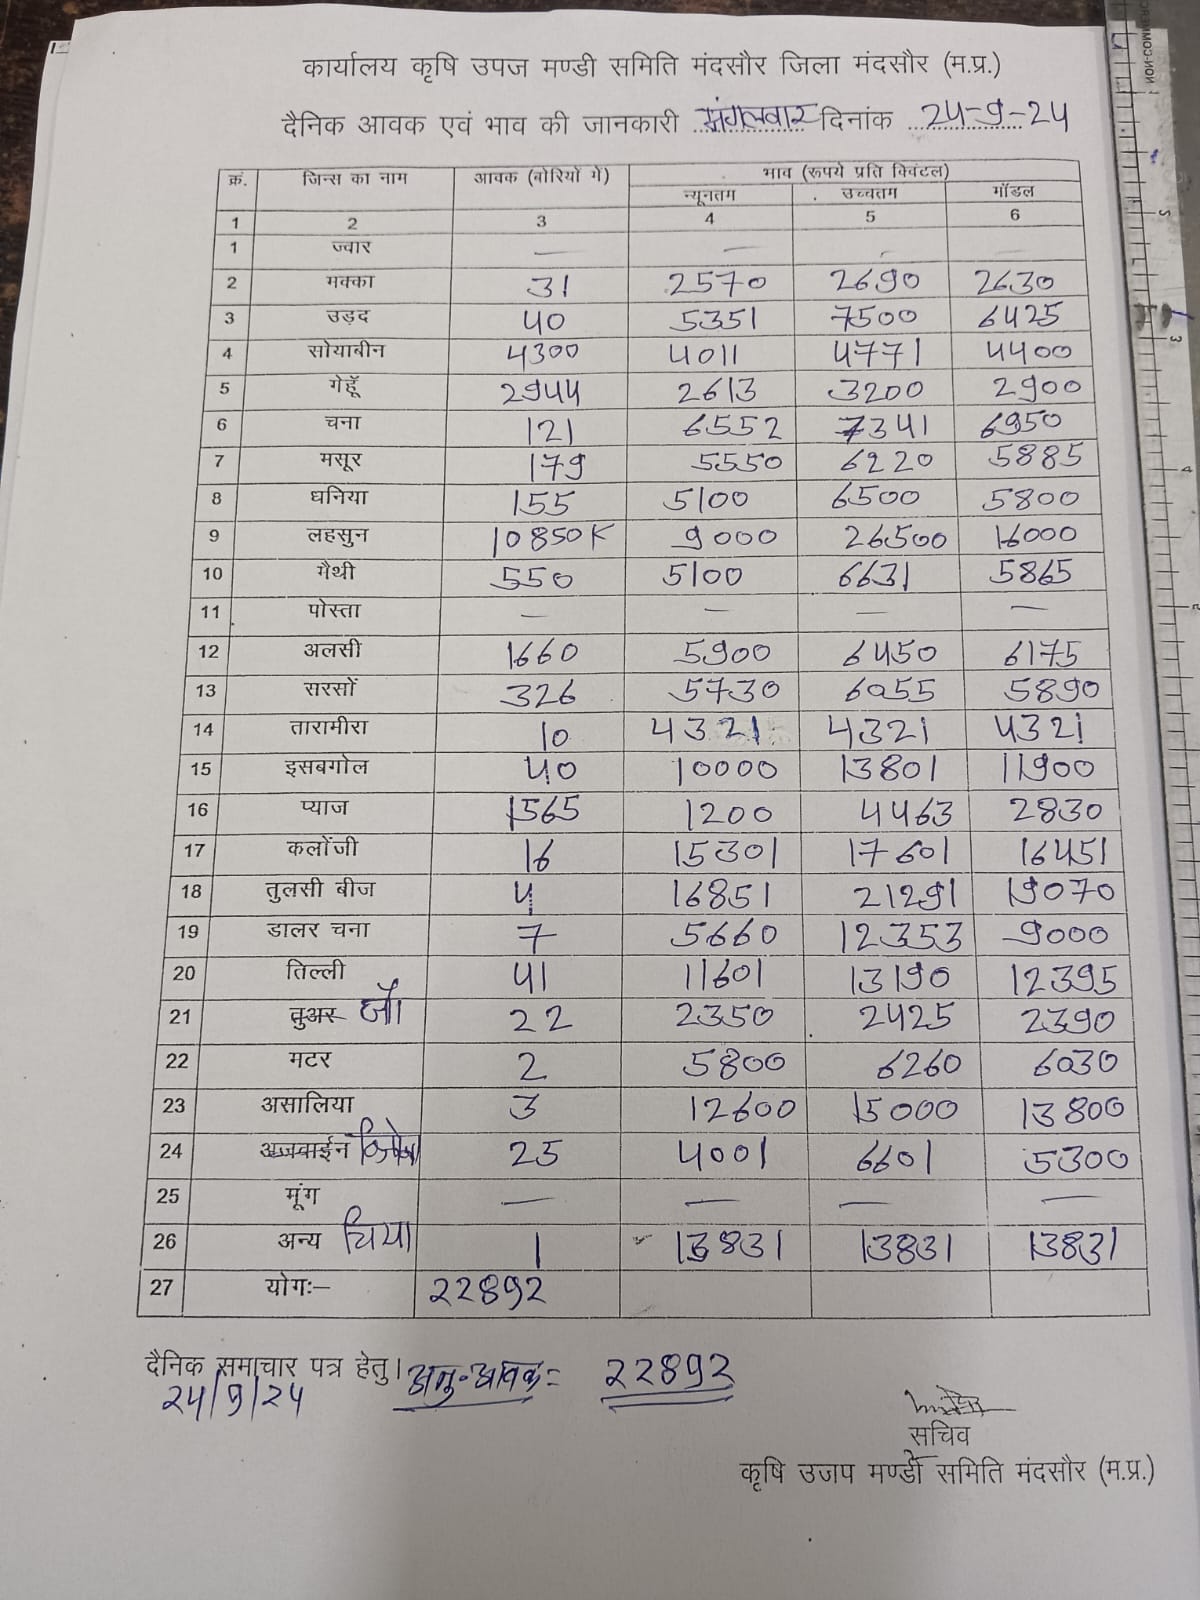 कार्यालय कृषि उपज मण्डी समिति मंदसौर जिला मंदसौर (म.प्र.)
दैनिक आवक एवं भाव की जानकारी मंगलवार दिनांक 24-9-24
क्रं. जिन्स का नाम आवक (बोरियों में) भाव (रूपये प्रति क्विंटल)
न्यूनतम उच्चतम मॉडल
1 2 3 4 5 6
1 ज्वार — — — —
2 मक्का 31 2570 2690 2630
3 उड़द 40 5351 7500 6425
4 सोयाबीन 4300 4011 4771 4400
5 गेहूॅ 2944 2613 3200 2900
6 चना 121 6552 7341 6950
7 मसूर 179 5550 6220 5885
8 धनिया 155 5100 6500 5800
9 लहसुन 10850K 9000 26500 16000
10 मैथी 550 5100 6631 5865
11 पोस्ता — — — —
12 अलसी 1660 5900 6450 6175
13 सरसों 326 5730 6055 5890
14 तारामीरा 10 4321 4321 4321
15 इसबगोल 40 10000 13801 11900
16 प्याज 1565 1200 4463 2830
17 कलोंजी 16 15301 17601 16451
18 तुलसी बीज 4 16851 21291 19070
19 डालर चना 7 5660 12353 9000
20 तिल्ली 41 11601 13190 12395
21 तुअर जौ 22 2350 2425 2390
22 मटर 2 5800 6260 6030
23 असालिया 3 12600 15000 13800
24 अजवाईन 25 4001 6601 5300
25 मूंग — — — —
26 अन्य चिया 1 13831 13831 13831
27 योगः— 22892
दैनिक समाचार पत्र हेतु। अनु-आवक= 22892
24/9/24
सचिव
कृषि उजप मण्डी समिति मंदसौर (म.प्र.)